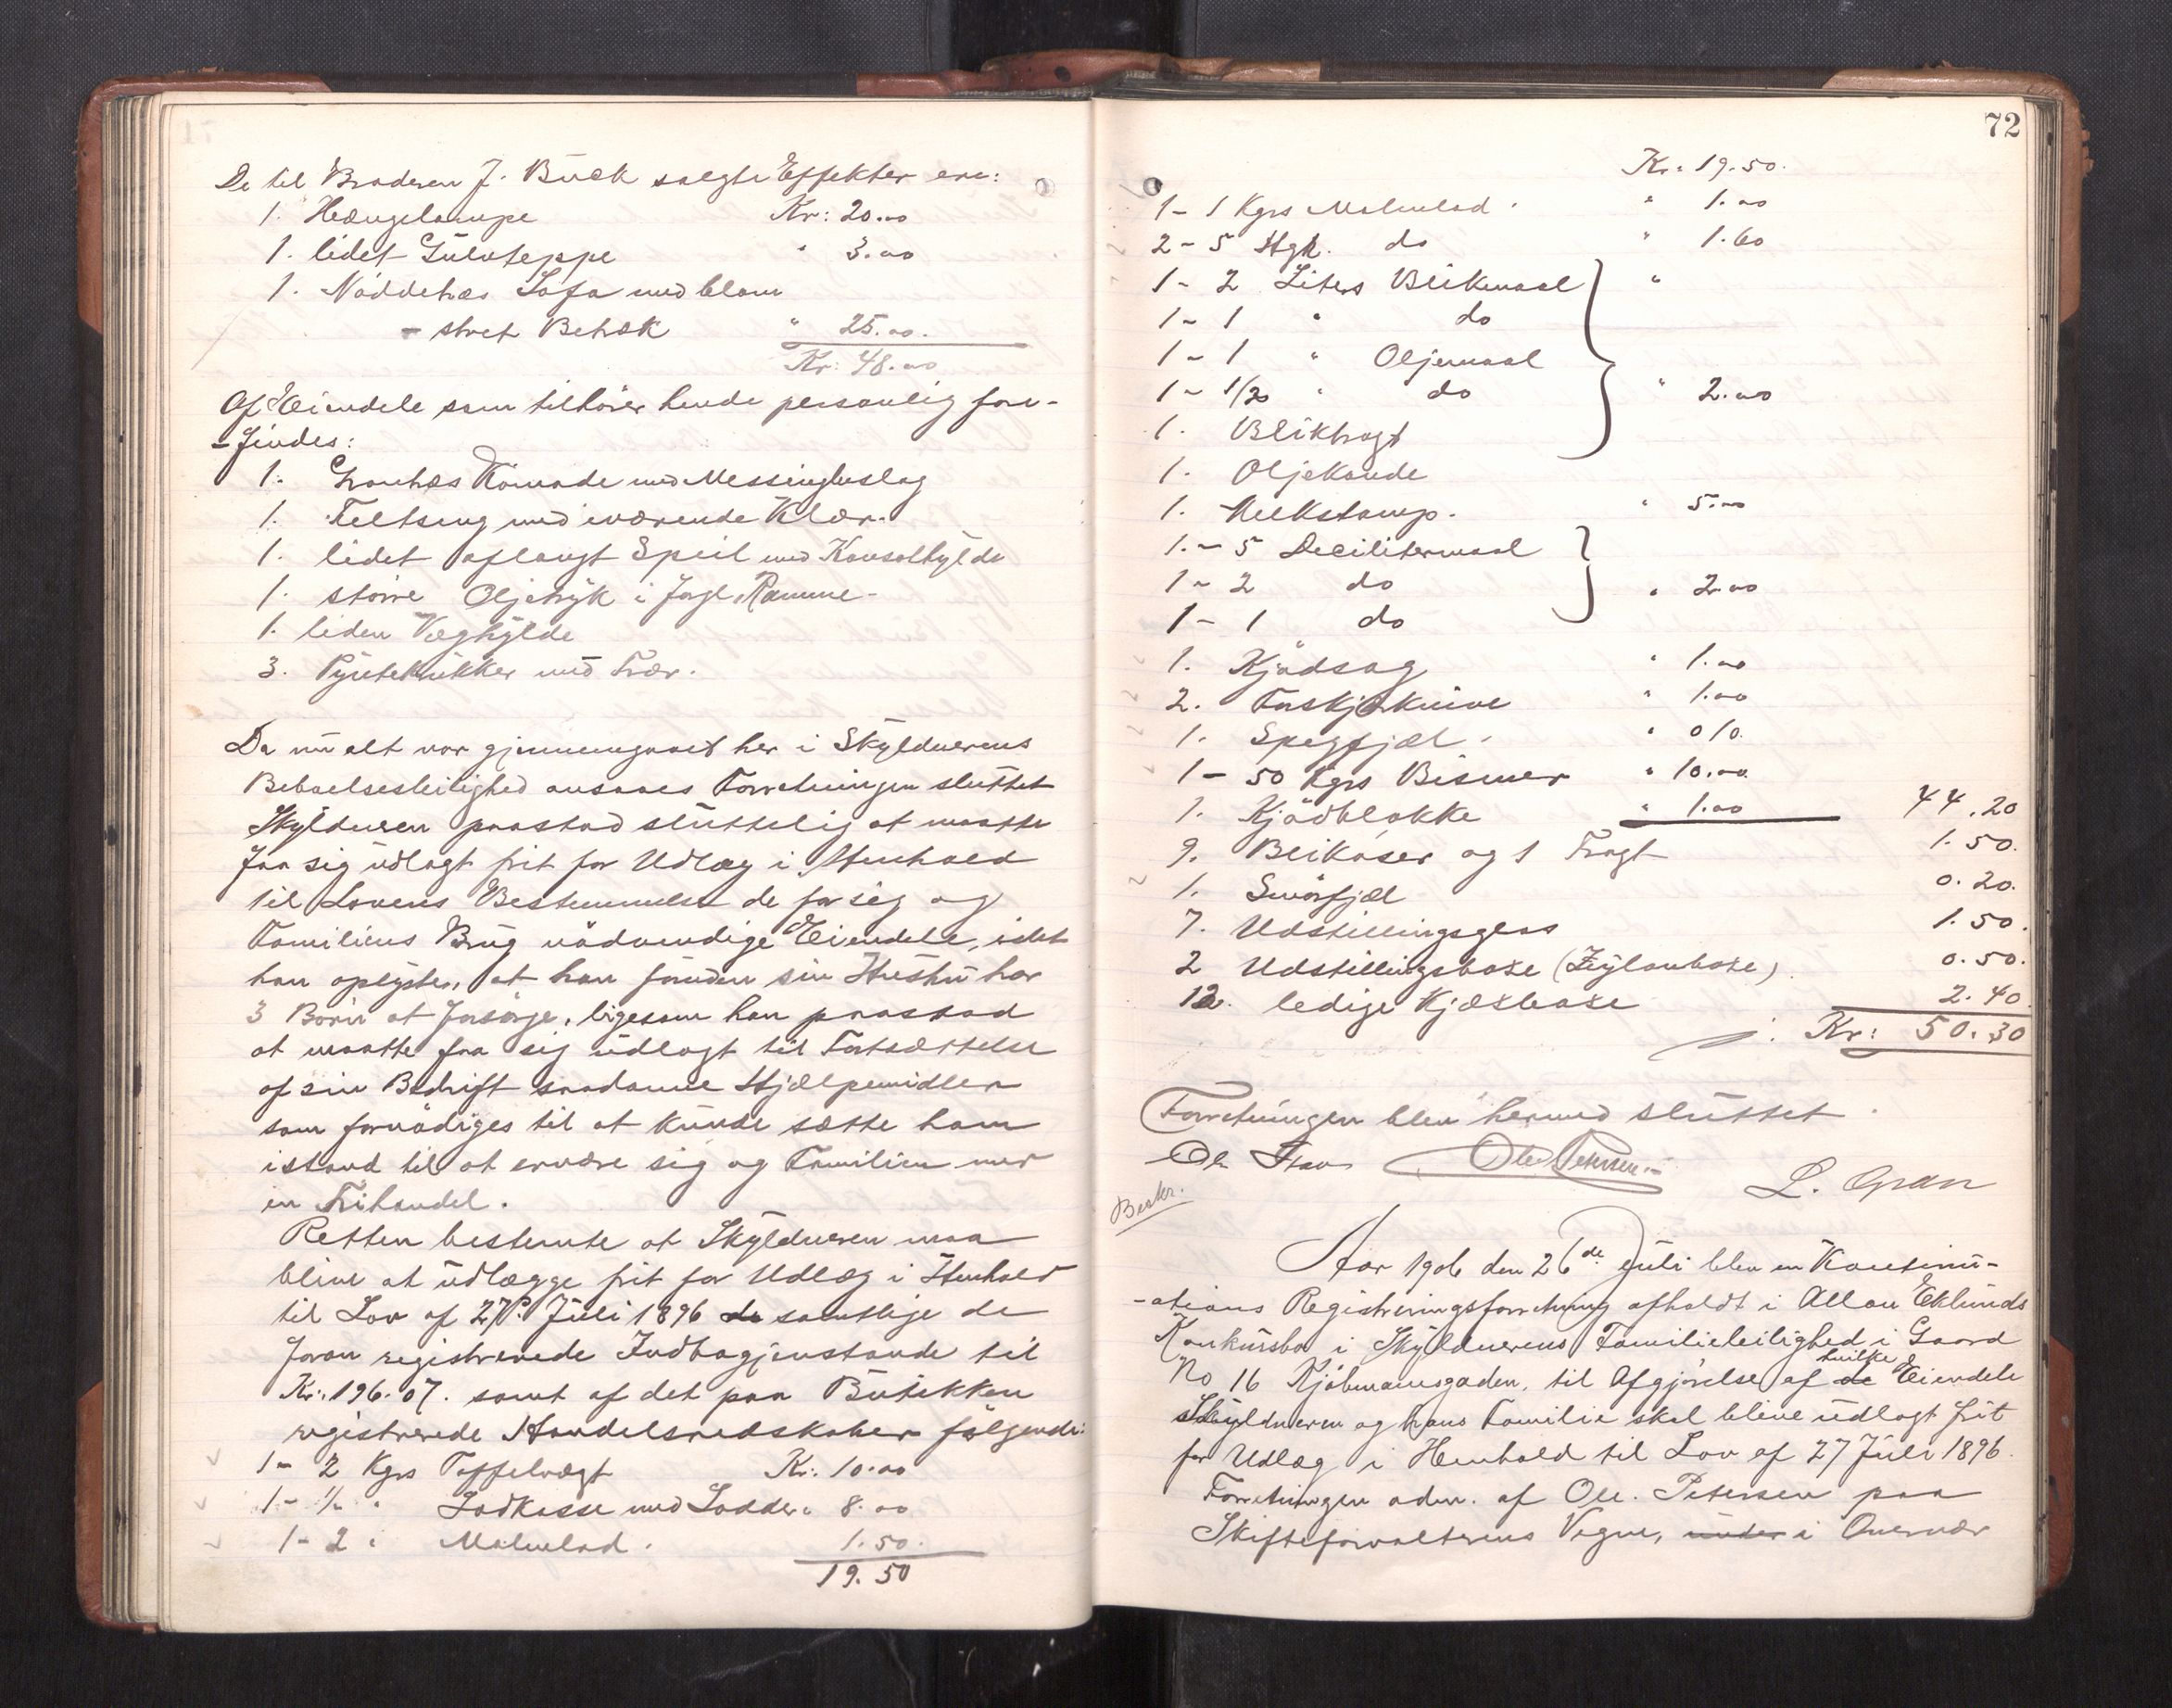 De til Broderen J. Buck solgte Effekter ere:
1. Hængelampe Kr: 20.00
1. lidet Gulvteppe " 3.00
1. Nöddetræs Sofa med blom
- stret Betræk " 25.00.
Kr: 48.00
Af Eiendele som tilhører hende personlig fore-
- findes:
1. Grantræs Komode med Messingbeslag
1. Feltseng med iværende Klær.
1. lidet aflangt Speil med Konsolhylde
1. större Oljetryk i forgl. Ramme-
1. liden Væghylde
3. Pyntekrukker med Trær.
Da nu alt var gjennemgaaet her i Skyldnerens
Beboelsesleilighed ansaaes Forretningen sluttet
Skyldneren paastod sluttelig at maatte
faa sig udlagt frit for Udlæg i Henhold
til Lovens Bestemmelse de for sig og
Familiens Brug nödvendige Eiendele, idet
han oplyste, at han foruden sin Hustru har
3 Börn at forsörge, ligesom han paastod
at maatte faa sig udlagt til Fortsættelse
af sin Bedrift saadanne Hjælpemidler
som fornödiges til at kunde sætte ham
istand til at ernære sig og Familien ved
en Frihandel.
Retten bestemte at Skyldneren maa
blive at udlægge frit for Udlæg i Henhold
til Lov af 27de Juli 1896 de samtlige de
foran registrerede Indbogjenstande til
Kr: 196.07. samt af det paa Butikken
registrerede Handelsredskaber følgende:
1- 2 Kgrs Taffelvægt Kr: 10.00
1- 1/2 " Lodkasse med Lodder " 8.00
1- 2 " Malmlod. 1.50.
19.50
72
Kr: 19.50.
1- 1 Kgrs Malmlod. " 1.00
2- 5 Htgr. do " 1.60
1- 2 Liters Blikmaal "
1- 1 " do
1- 1 " Oljemaal
1- 1/20 " do " 2.00
1. Bliktragt
1. Oljekande
1. Melkstamp. " 5.00
1.- 5 Decilitermaal
1- 2 do " 2.00
1- 1 do
1. Kjødsag " 1.00
2. Forskjærknive " 1.00
1. Spegfjæl. " 0 10.
1- 50 Kgrs Bismer " 10.00.
1. Kjödblokke " 1.00 44.20
9. Blikdaser og 1 Tragt 1.50.
1. Smörfjæl 0.20.
7. Udstillingsglass 1.50.
2 Udstillingsbokse (Zeylonbokse). 0.50.
12. ledige Kjæksbokse 2.40.
Kr: 50.30
Forretningen blev hermed sluttet.
Ole Petersen
L. Gran
Beskr.
Aar 1906 den 26de Juli blev en Kontinu-
-ations Registreringsforretning afholdt i Allan Eklunds
Konkursbo i Skyldnerens Familieleilighed i Gaard
No 16 Kjöbmannsgaden, til Afgjörelse af de hvilke Eiendele
Skyldneren og hans Familie skal blive udlagt frit
for Udlæg i Henhold til Lov af 27 Juli 1896.
Forretningen adm. af Ole Petersen paa
Skifteforvalterens Vegne, under i Overvær